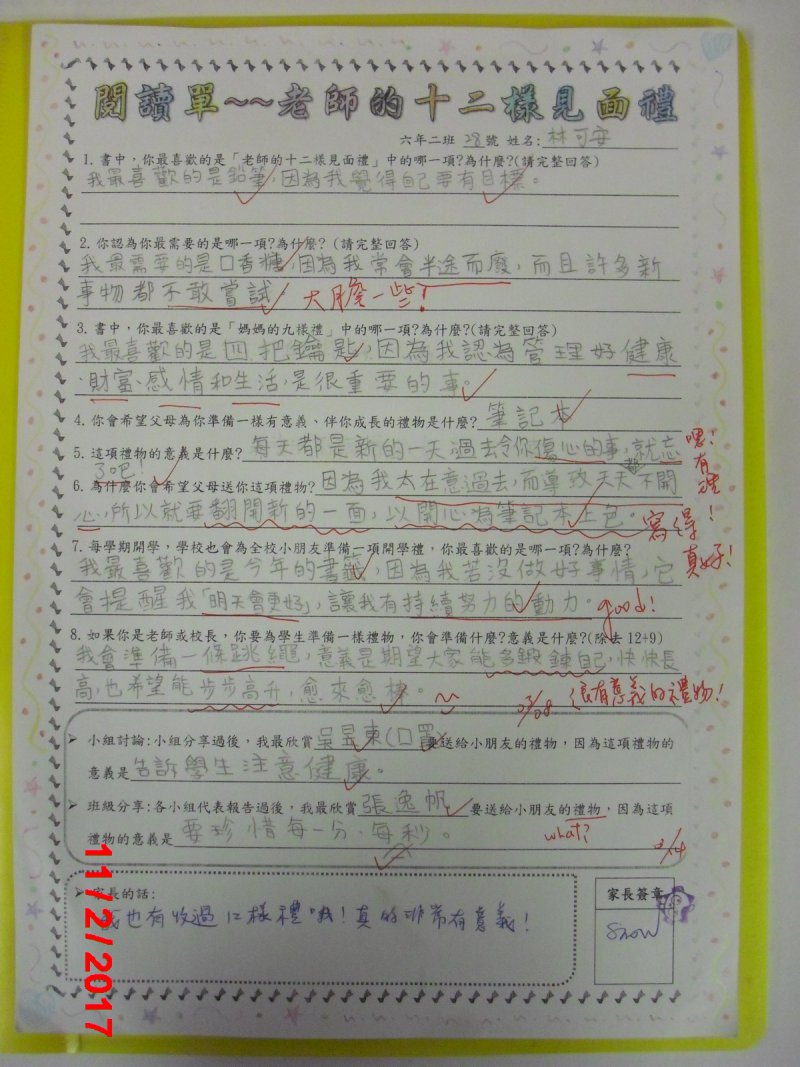 閱讀單~~老師的十二樣見面禮
六年二班 28號 姓名:林可安
1. 書中，你最喜歡的是「老師的十二樣見面禮」中的哪一項?為什麼?(請完整回答)
我最喜歡的是鉛筆，因為我覺得自己要有目標。
2. 你認為你最需要的是哪一項?為什麼? (請完整回答)
我最需要的是口香糖，因為我常會半途而廢，而且許多新
事物都不敢嘗試 大膽一些!
3. 書中，你最喜歡的是「媽媽的九樣禮」中的哪一項?為什麼?(請完整回答)
我最喜歡的是四把鑰匙，因為我認為管理好健康
、財富、感情和生活，是很重要的事。
4. 你會希望父母為你準備一樣有意義、伴你成長的禮物是什麼? 筆記本
5. 這項禮物的意義是什麼? 每天都是新的一天，過去令你傷心的事，就忘
了吧! 嗯!有理!
6. 為什麼你會希望父母送你這項禮物? 因為我太在意過去，而導致天天不開
心，所以就要翻開新的一面，以開心為筆記本上色。 寫得真好!
7. 每學期開學，學校也會為全校小朋友準備一項開學禮，你最喜歡的是哪一項?為什麼?
我最喜歡的是今年的書籤，因為我若沒做好事情，它
會提醒我「明天會更好」，讓我有持續努力的動力。 good!
8. 如果你是老師或校長，你要為學生準備一樣禮物，你會準備什麼?意義是什麼?(除去 12+9)
我會準備一條跳繩，意義是期望大家能多鍛鍊自己，快快長
高，也希望能步步高升，愈來愈棒。 很有意義的禮物!
小組討論:小組分享過後，我最欣賞吳昱東(口罩)要送給小朋友的禮物，因為這項禮物的
意義是告訴學生注意健康。
班級分享:各小組代表報告過後，我最欣賞 張逸帆 要送給小朋友的禮物，因為這項
禮物的意義是 要珍惜每一分、每秒。 what?
2/14
家長的話:
我也有收過12樣禮哦!真的非常有意義!
家長簽章
Snow
11/2/2017